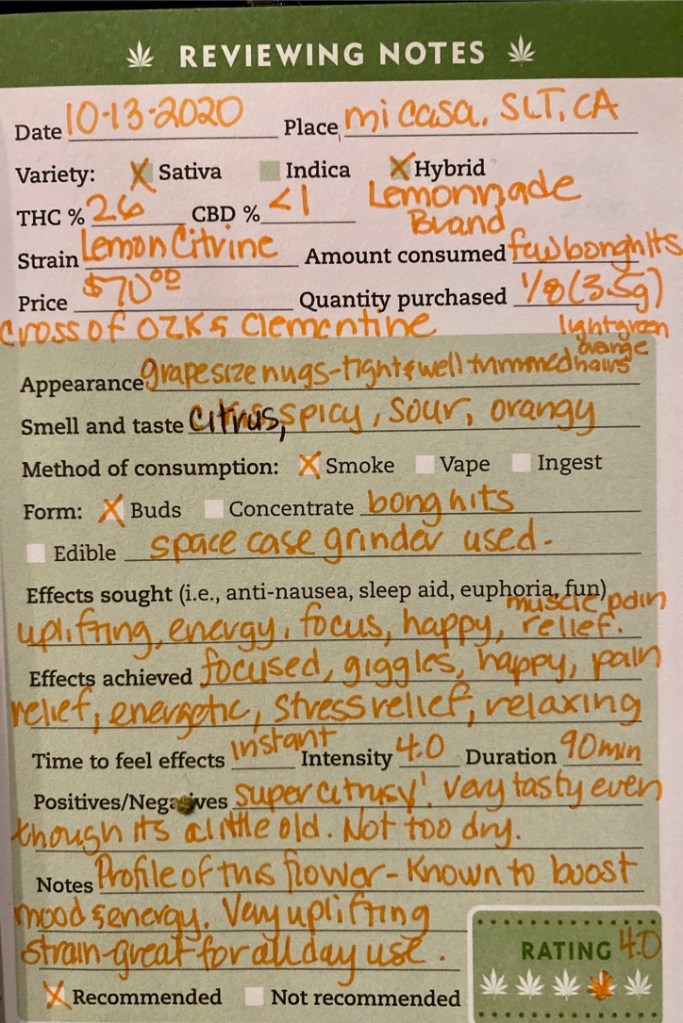 REVIEWING NOTES
Date 10-13-2020 Place mi casa, SLT, CA
Variety: X Sativa Indica X Hybrid
THC % 26 CBD % <1 Lemonnade Brand
Strain Lemon Citrine Amount consumed few bong hits
Price $70.00 Quantity purchased 1/8 (3.5g)
cross of OZK & Clementine light green orange hairs
Appearance grape size nugs-tight & well-trimmed
Smell and taste citrus, spicy, sour, orangy
Method of consumption: X Smoke Vape Ingest
Form: X Buds Concentrate bong hits
Edible space case grinder used.
Effects sought (i.e., anti-nausea, sleep aid, euphoria, fun)
uplifting, energy, focus, happy, muscle pain relief.
Effects achieved focused, giggles, happy, pain
relief, energetic, stress relief, relaxing
Time to feel effects instant Intensity 4.0 Duration 90min
Positives/Negatives super citrusy! Very tasty even
though its a little old. Not too dry.
Notes Profile of this flower - Known to boost
mood & energy. Very uplifting
strain-great for all day use.
RATING 4.0
X Recommended Not recommended